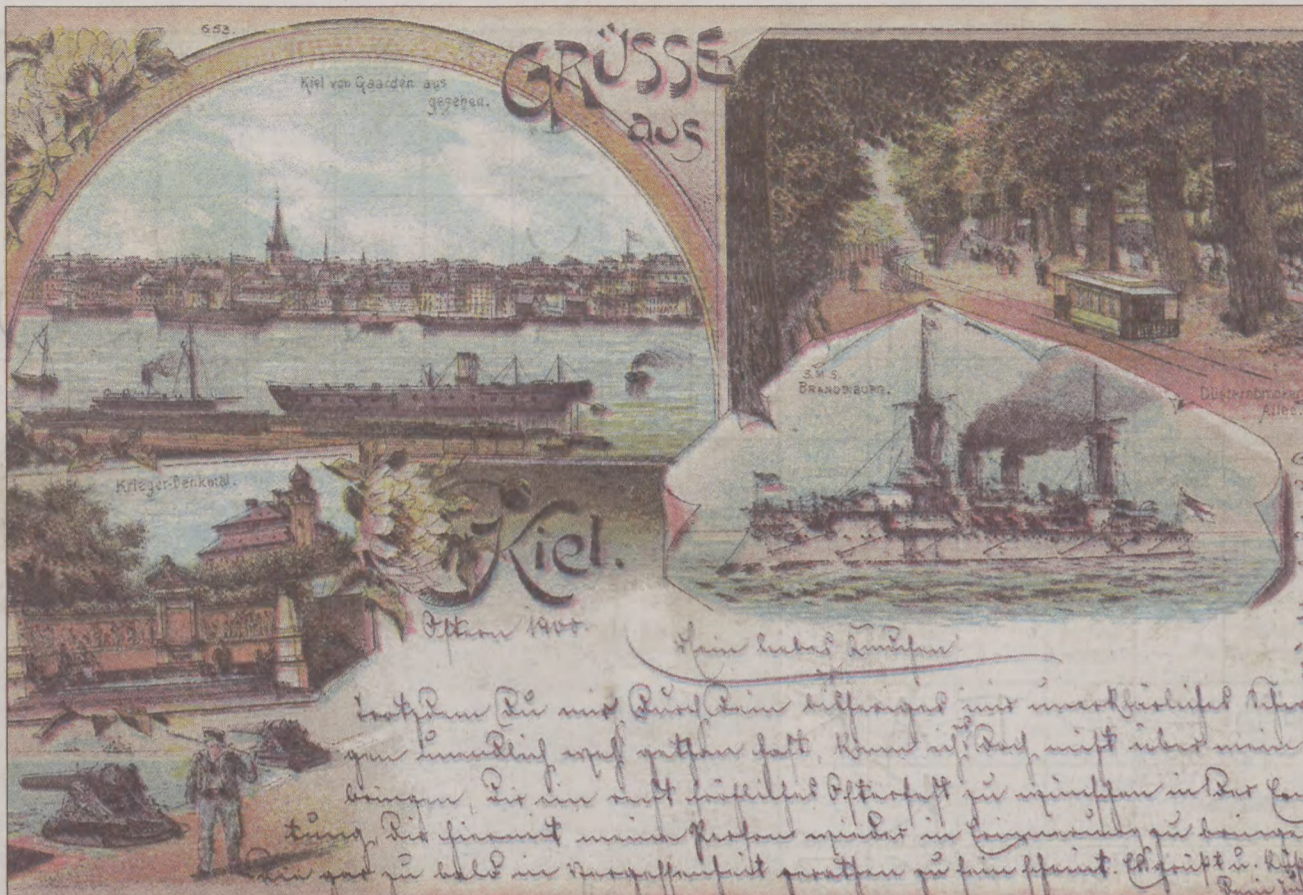 653.
GRÜSSE
aus
Kiel.
Kiel von Gaarden aus
gesehen.
S.M.S.
BRANDENBURG.
Düsternbrooker
Allee.
Krieger-Denkmal.
Ostern 1900.
Mein liebes Annchen
trotzdem Du mir durch Dein bisheriges mir unerklärliches Schwei
gen unendlich weh gethan hast, kann ich's doch nicht über mein
bringen, Dir ein recht fröhliches Osterfest zu wünschen in der
tung, Dir hiermit meine Person wieder in Erinnerung zu bringen
Die gar zu bald in Vergessenheit gerathen zu sein scheint. Es grüßt u. küßt